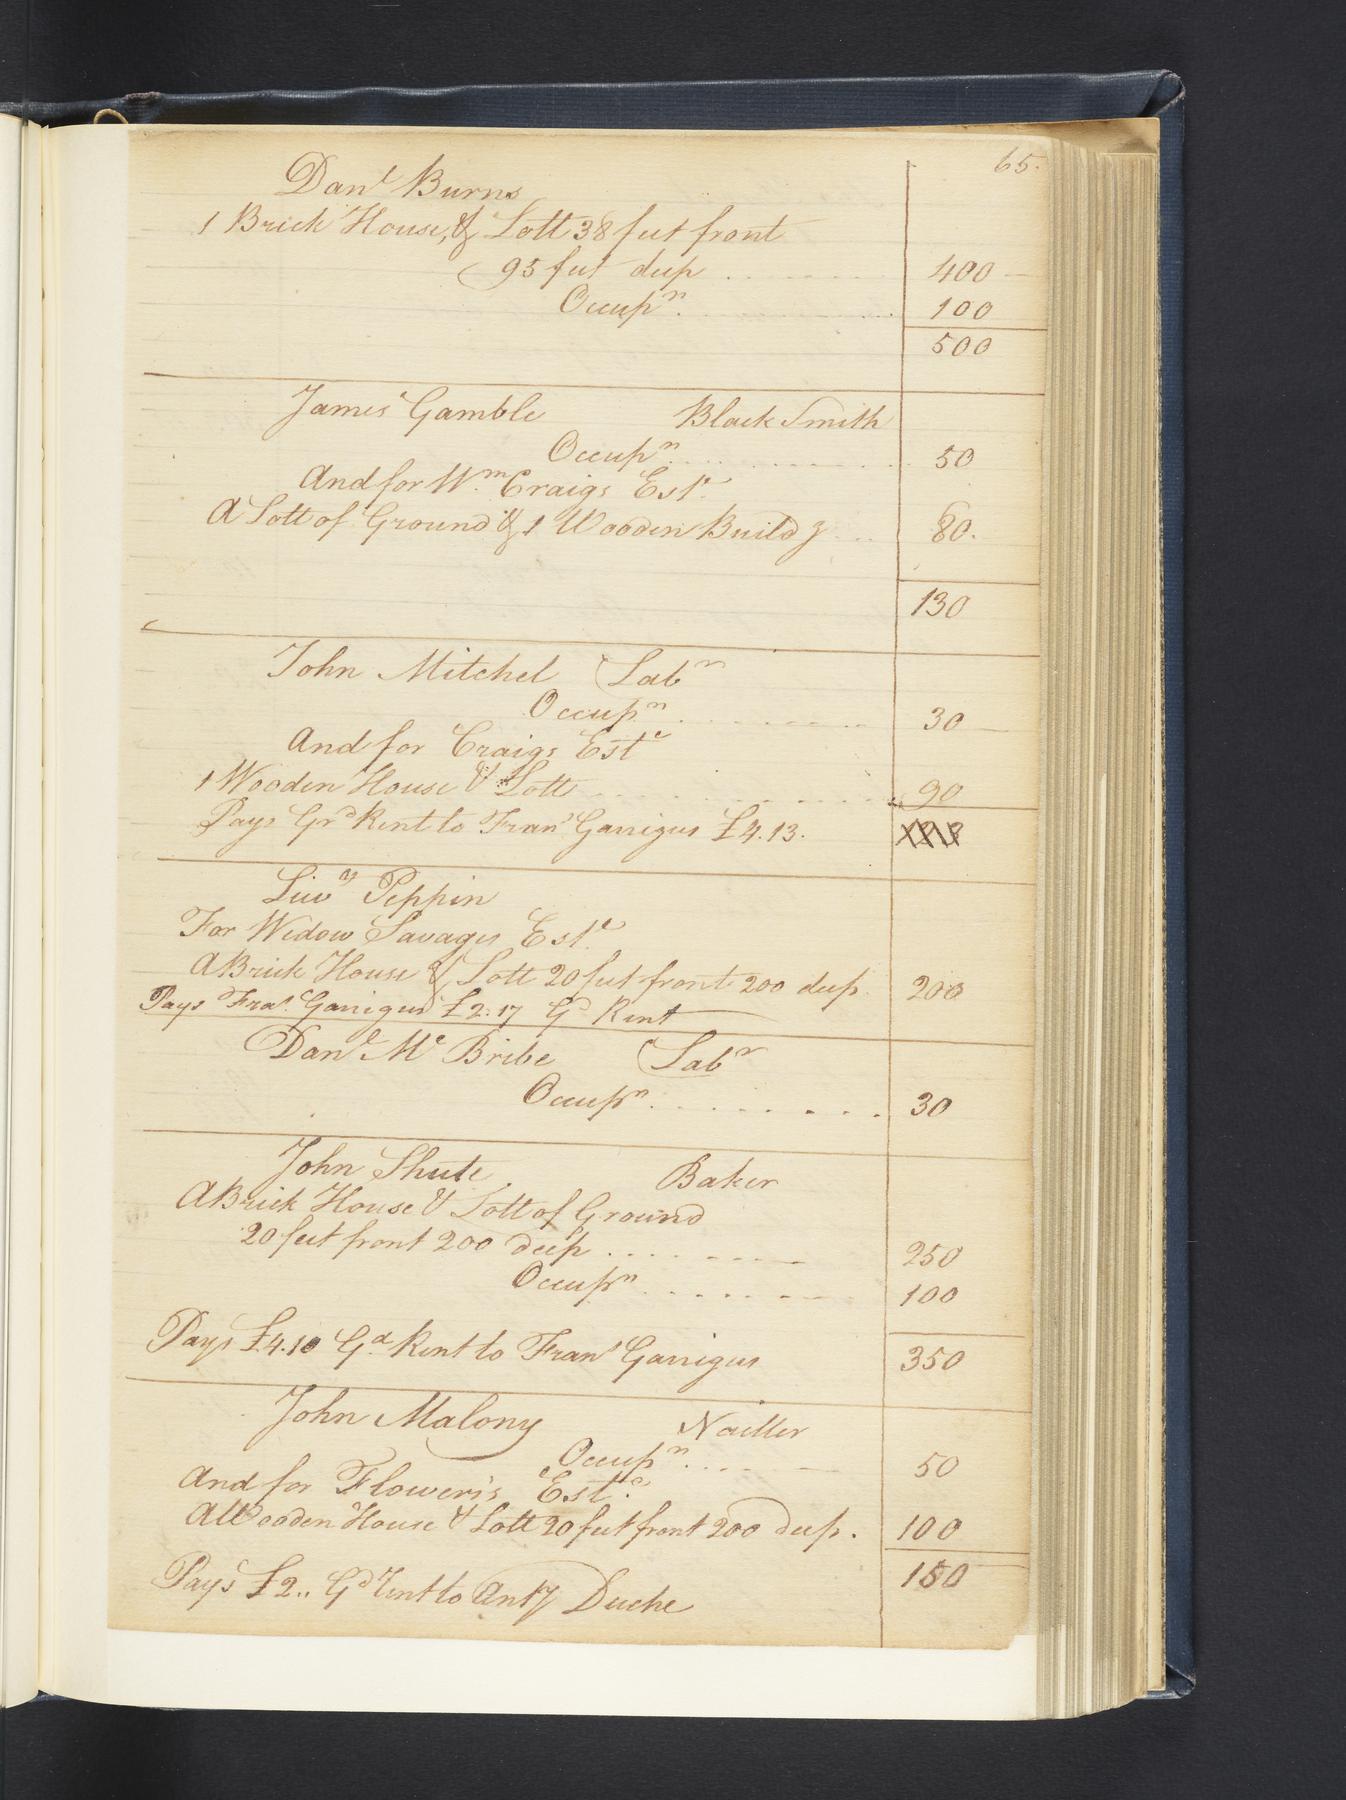 65.
Danl Burns
1 Brick House, & Lott 38 feet front
95 feet deep . . . . . . . . . 400
Occupn. . . . . . . . . . . . 100
500
James Gamble Black Smith
Occupn . . . . . . . . . . 50
And for Wm. Craigs Este.
A Lott of Ground & 1 Wooden Buildg . . . 80.
130
John Mitchel Labr
Occupn . . . . . . . . . 30
And for Craigs Este
1 Wooden House & Lott . . . . . . . . . . . . 90
Pays Grd Rent to Frans Garrigus £4.13.
Livy Peppin
For Widow Savages Este.
A Brick House & Lott 20 feet front 200 deep 200
Pays Fras. Garrigus £2.17 Gd Rent
Danl. Mc Bribe Labr
Occupn. . . . . . . . . . 30
John Shute Baker
A Brick House & Lott of Ground
20 feet front 200 deep . . . . . . . . 250
Occupn . . . . . . . . 100
Pays £4.10 Gd. Rent to Frans Garrigus 350
John Malony Nailler
Occupn. . . . . . 50
And for Flower's Este.
A Wooden House & Lott 20 feet front 200 deep. 100
150
Pays £2.. Gd Rent to Anty Duche